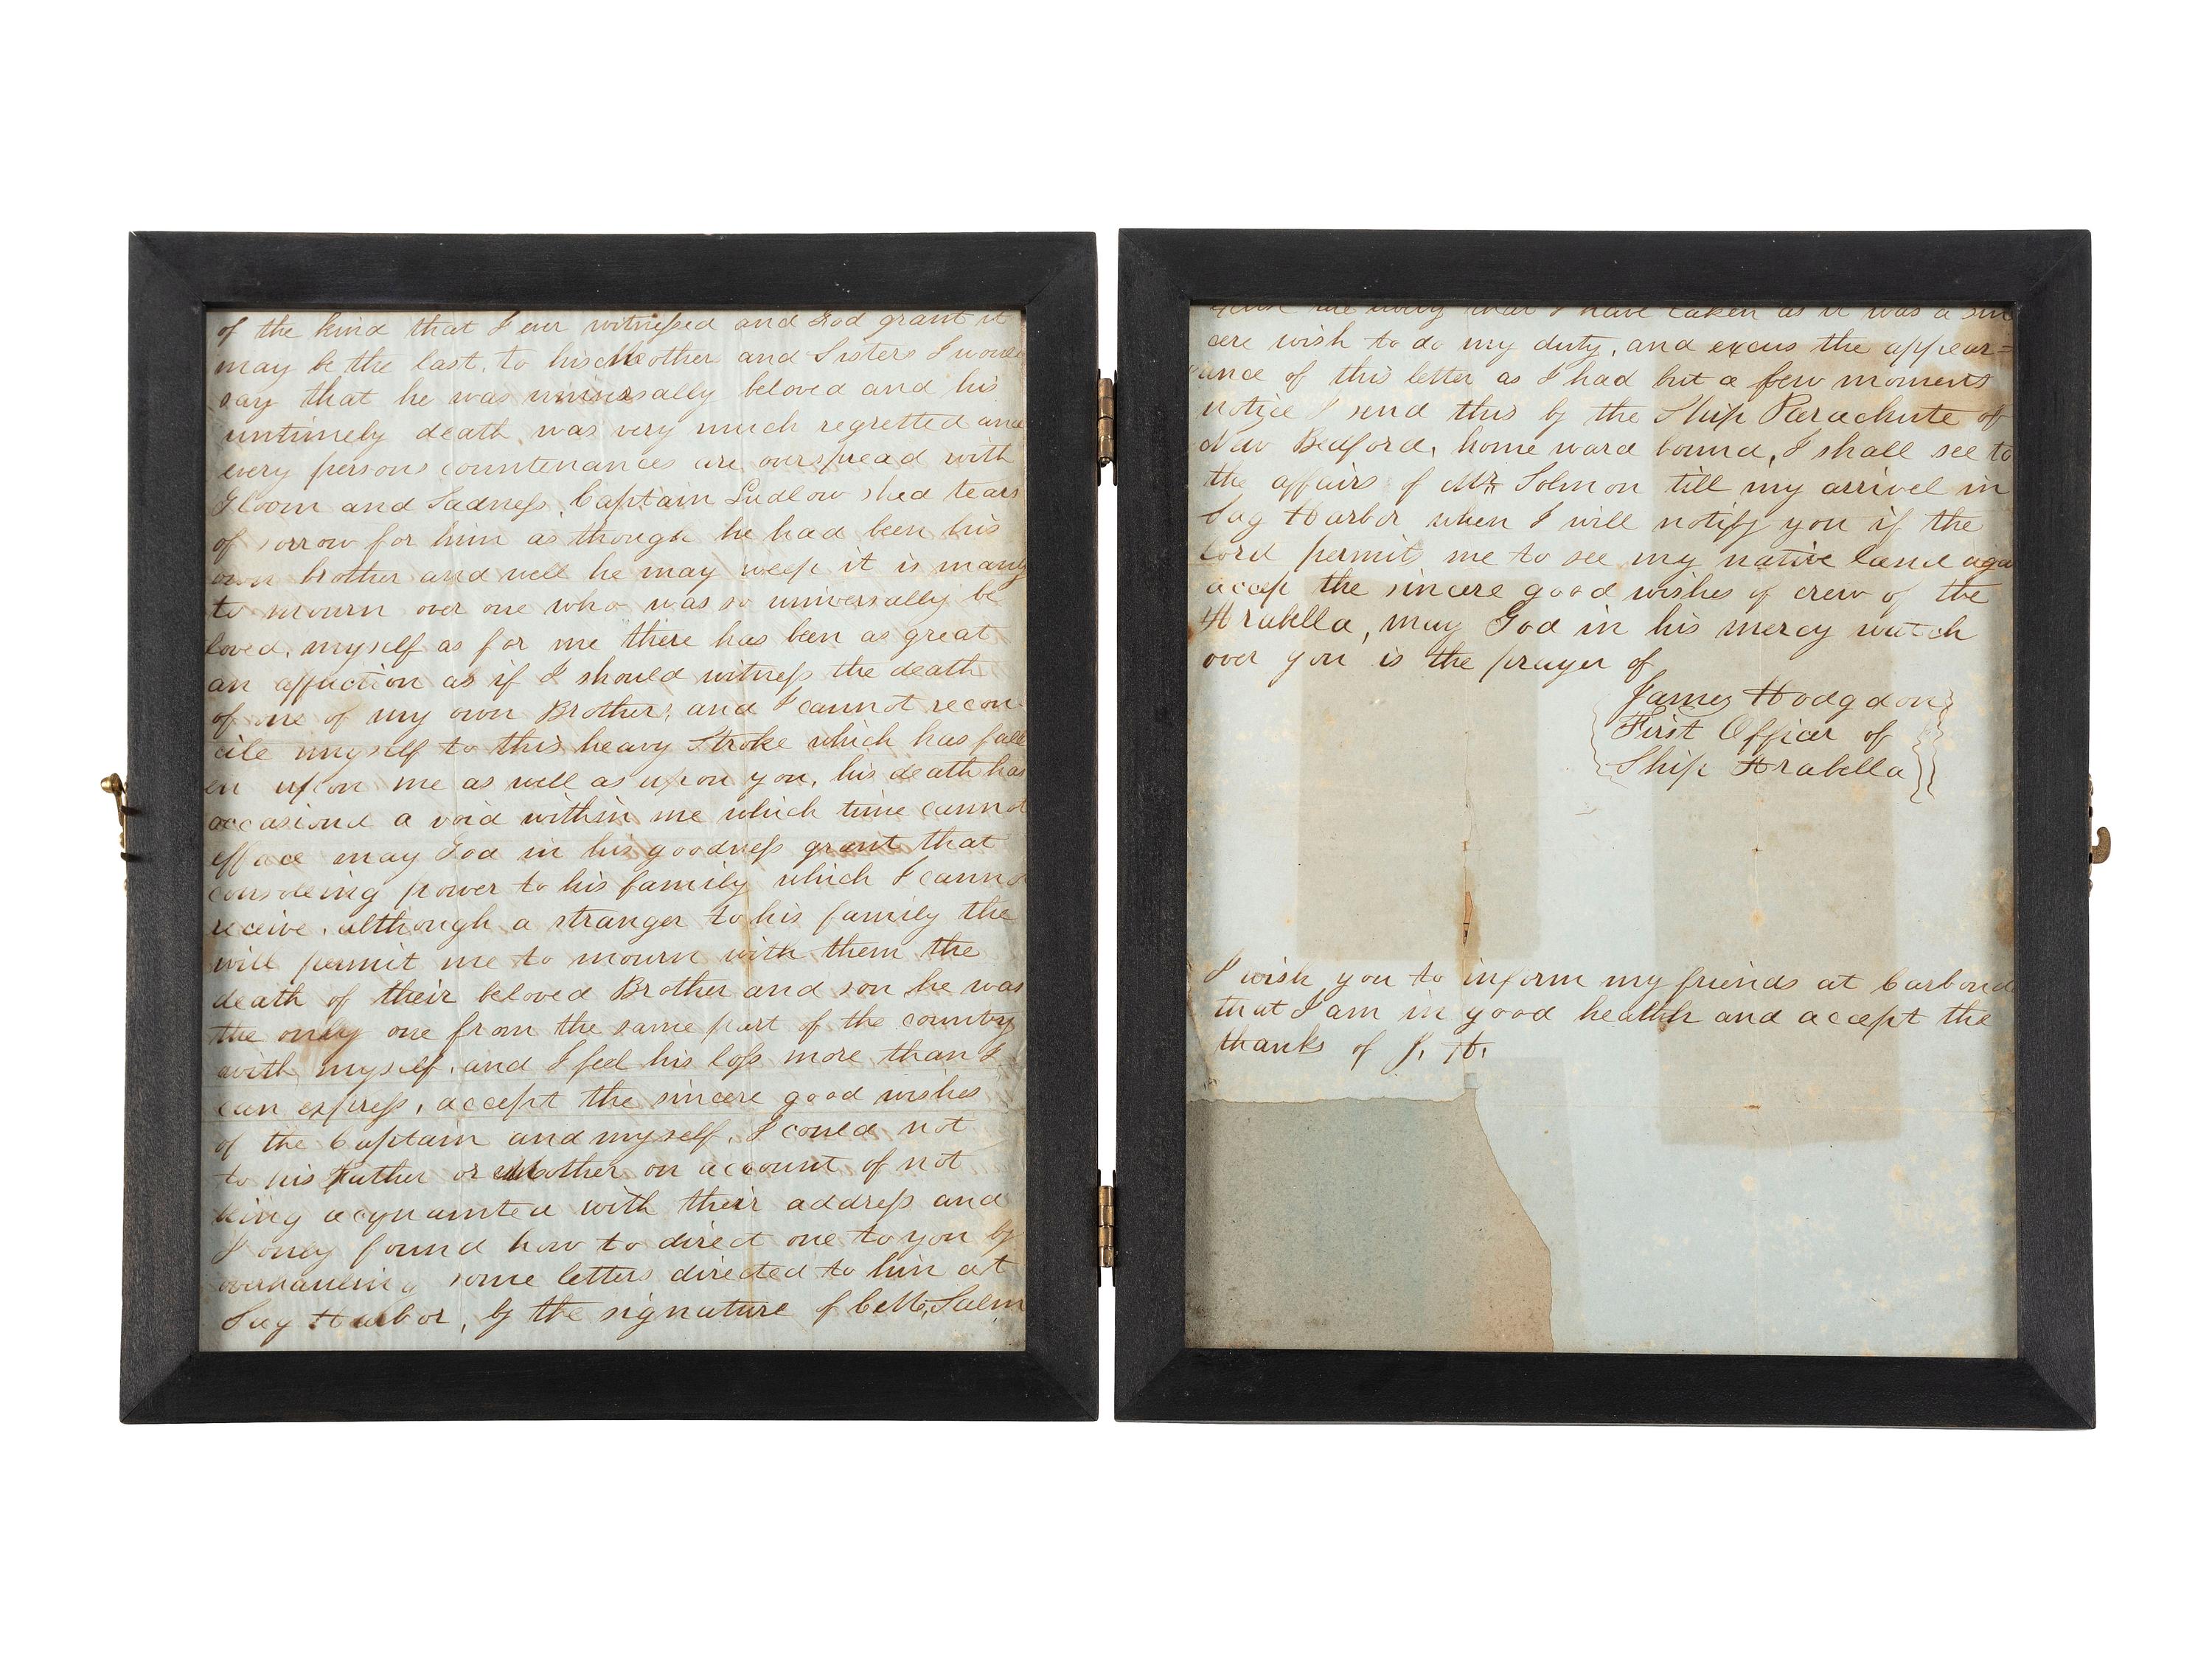 of the kind that I ever witnessed and God grant it
may be the last, to his Mother and Sisters I would
say that he was universally beloved and his
untimely death was very much regretted and
every persons countenances are overspread with
Gloom and Sadness. Captain Ludlow shed tears
of sorrow for him as though he had been his
own brother and well he may weep it is manly
to mourn over one who was so universally be
loved, myself as for me there has been as great
an affliction as if I should witness the death
of one of my own Brothers, and I cannot recon-
cile myself to this heavy Stroke which has fall
en upon me as well as upon you, his death has
occasiond a void within me which time cannot
efface may God in his goodness grant that
consoleing power to his family which I cannot
receive. although a stranger to his family the
will permit me to mourn with them the
death of their beloved Brother and son he was
the only one from the same part of the country
with myself. and I feel his loss more than I
can express, accept the sincere good wishes
of the Captain and myself. I could not
to his Father or Mother on account of not
being acquainted with their address and
I only found how to direct one to you by
overhauling some letters directed to him at
Sag Harbor, by the signature of C M. Salm
I have taken as it was a sin
cere wish to do my duty, and excus the appear=
ance of this letter as I had but a few moments
notice I send this by the Ship Parachute of
New Bedford, home ward bound, I shall see to
the affairs of Mr. Solmon till my arrivel in
Sag Harbor when I will notify you if the
Lord permit me to see my native land aga
accep the sincere good wishes of crew of the
Arabella, may God in his mercy watch
over you is the prayer of
James Hodgdon
First Officer of
Ship Arabella
I wish you to inform my friends at Carbond
that I am in good health and accept the
thanks of J. H.